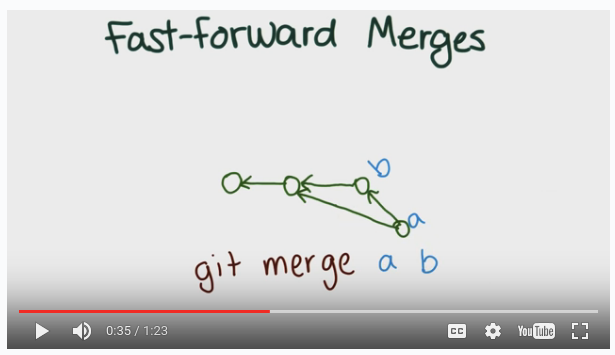 Fast-forward Merges
b
a
git merge a b
0:35 / 1:23
CC
YouTube